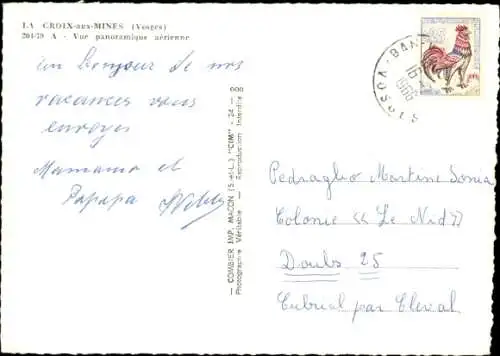 LA CROIX-aux-MINES (Vosges)
204-79 A - Vue panoramique aérienne
un bonjour de nos
vacances vous
envoyes
Mamama et
Papapa
— COMBIER IMP. MACON (S.-et-L.) "CIM" - 24 —
Photographie Véritable - Reproduction Interdite
BAN
VOSGES
1966
Pedraglio Martine Sonia
Colonie « Le Nid »
Doubs 25
Cubrial par Cleval